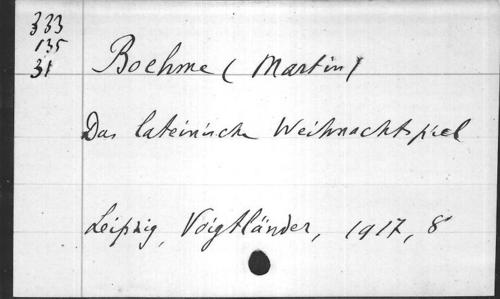 333
135
31
Boehme (Martin)
Das lateinische Weihnachtspiel
Leipzig, Voigtländer, 1917, 8°